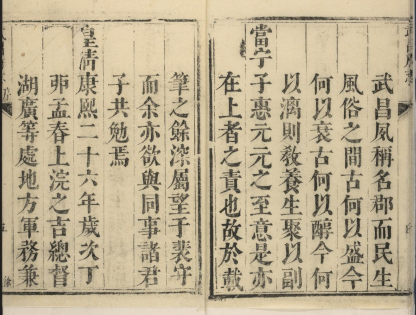 武昌夙稱名郡而民生
風俗之間古何以盛今
何以衰古何以醇今何
以漓則教養生聚以副
當宁子惠元元之至意是亦
在上者之責也故於戴
筆之餘深屬望于裴守
而余亦欲與同事諸君
子共勉焉
皇清康熙二十六年歲次丁
卯孟春上浣之吉總督
湖廣等處地方軍務兼